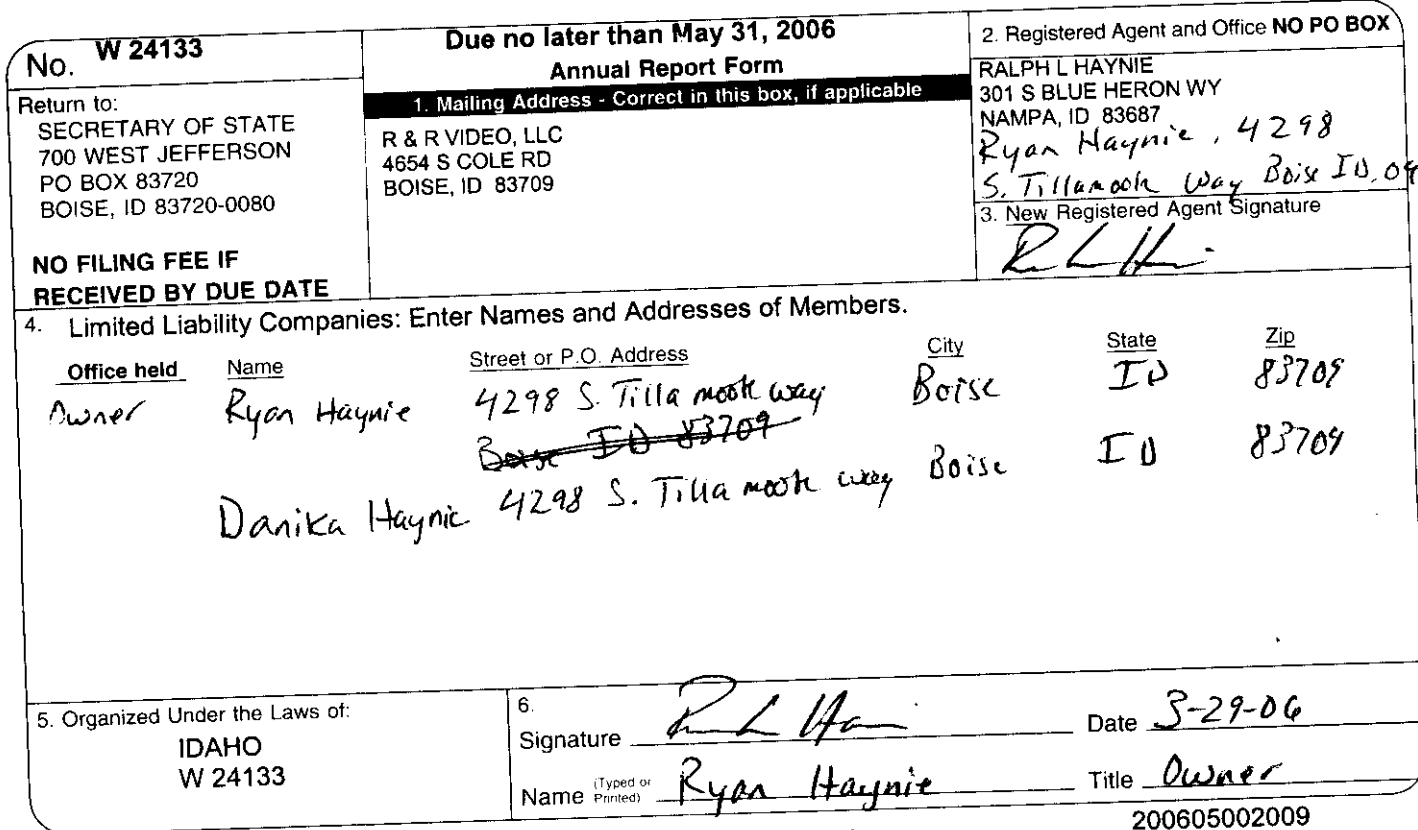 No. W 24133
Return to:
SECRETARY OF STATE
700 WEST JEFFERSON
PO BOX 83720
BOISE, ID 83720-0080
NO FILING FEE IF
RECEIVED BY DUE DATE
Due no later than May 31, 2006
Annual Report Form
1. Mailing Address - Correct in this box, if applicable
R & R VIDEO, LLC
4654 S COLE RD
BOISE, ID 83709
2. Registered Agent and Office NO PO BOX
RALPH L HAYNIE
301 S BLUE HERON WY
NAMPA, ID 83687
Ryan Haynie, 4298
S. Tillamook Way Boise ID. 09
3. New Registered Agent Signature
4. Limited Liability Companies: Enter Names and Addresses of Members.
Office held Name Street or P.O. Address City State Zip
Owner Ryan Haynie 4298 S. Tillamook way Boise ID 83709
Boise ID 83709
Danika Haynie 4298 S. Tillamook way Boise ID 83709
5. Organized Under the Laws of:
IDAHO
W 24133
6.
Signature Date 3-29-06
Name (Typed or Printed) Ryan Haynie Title Owner
200605002009